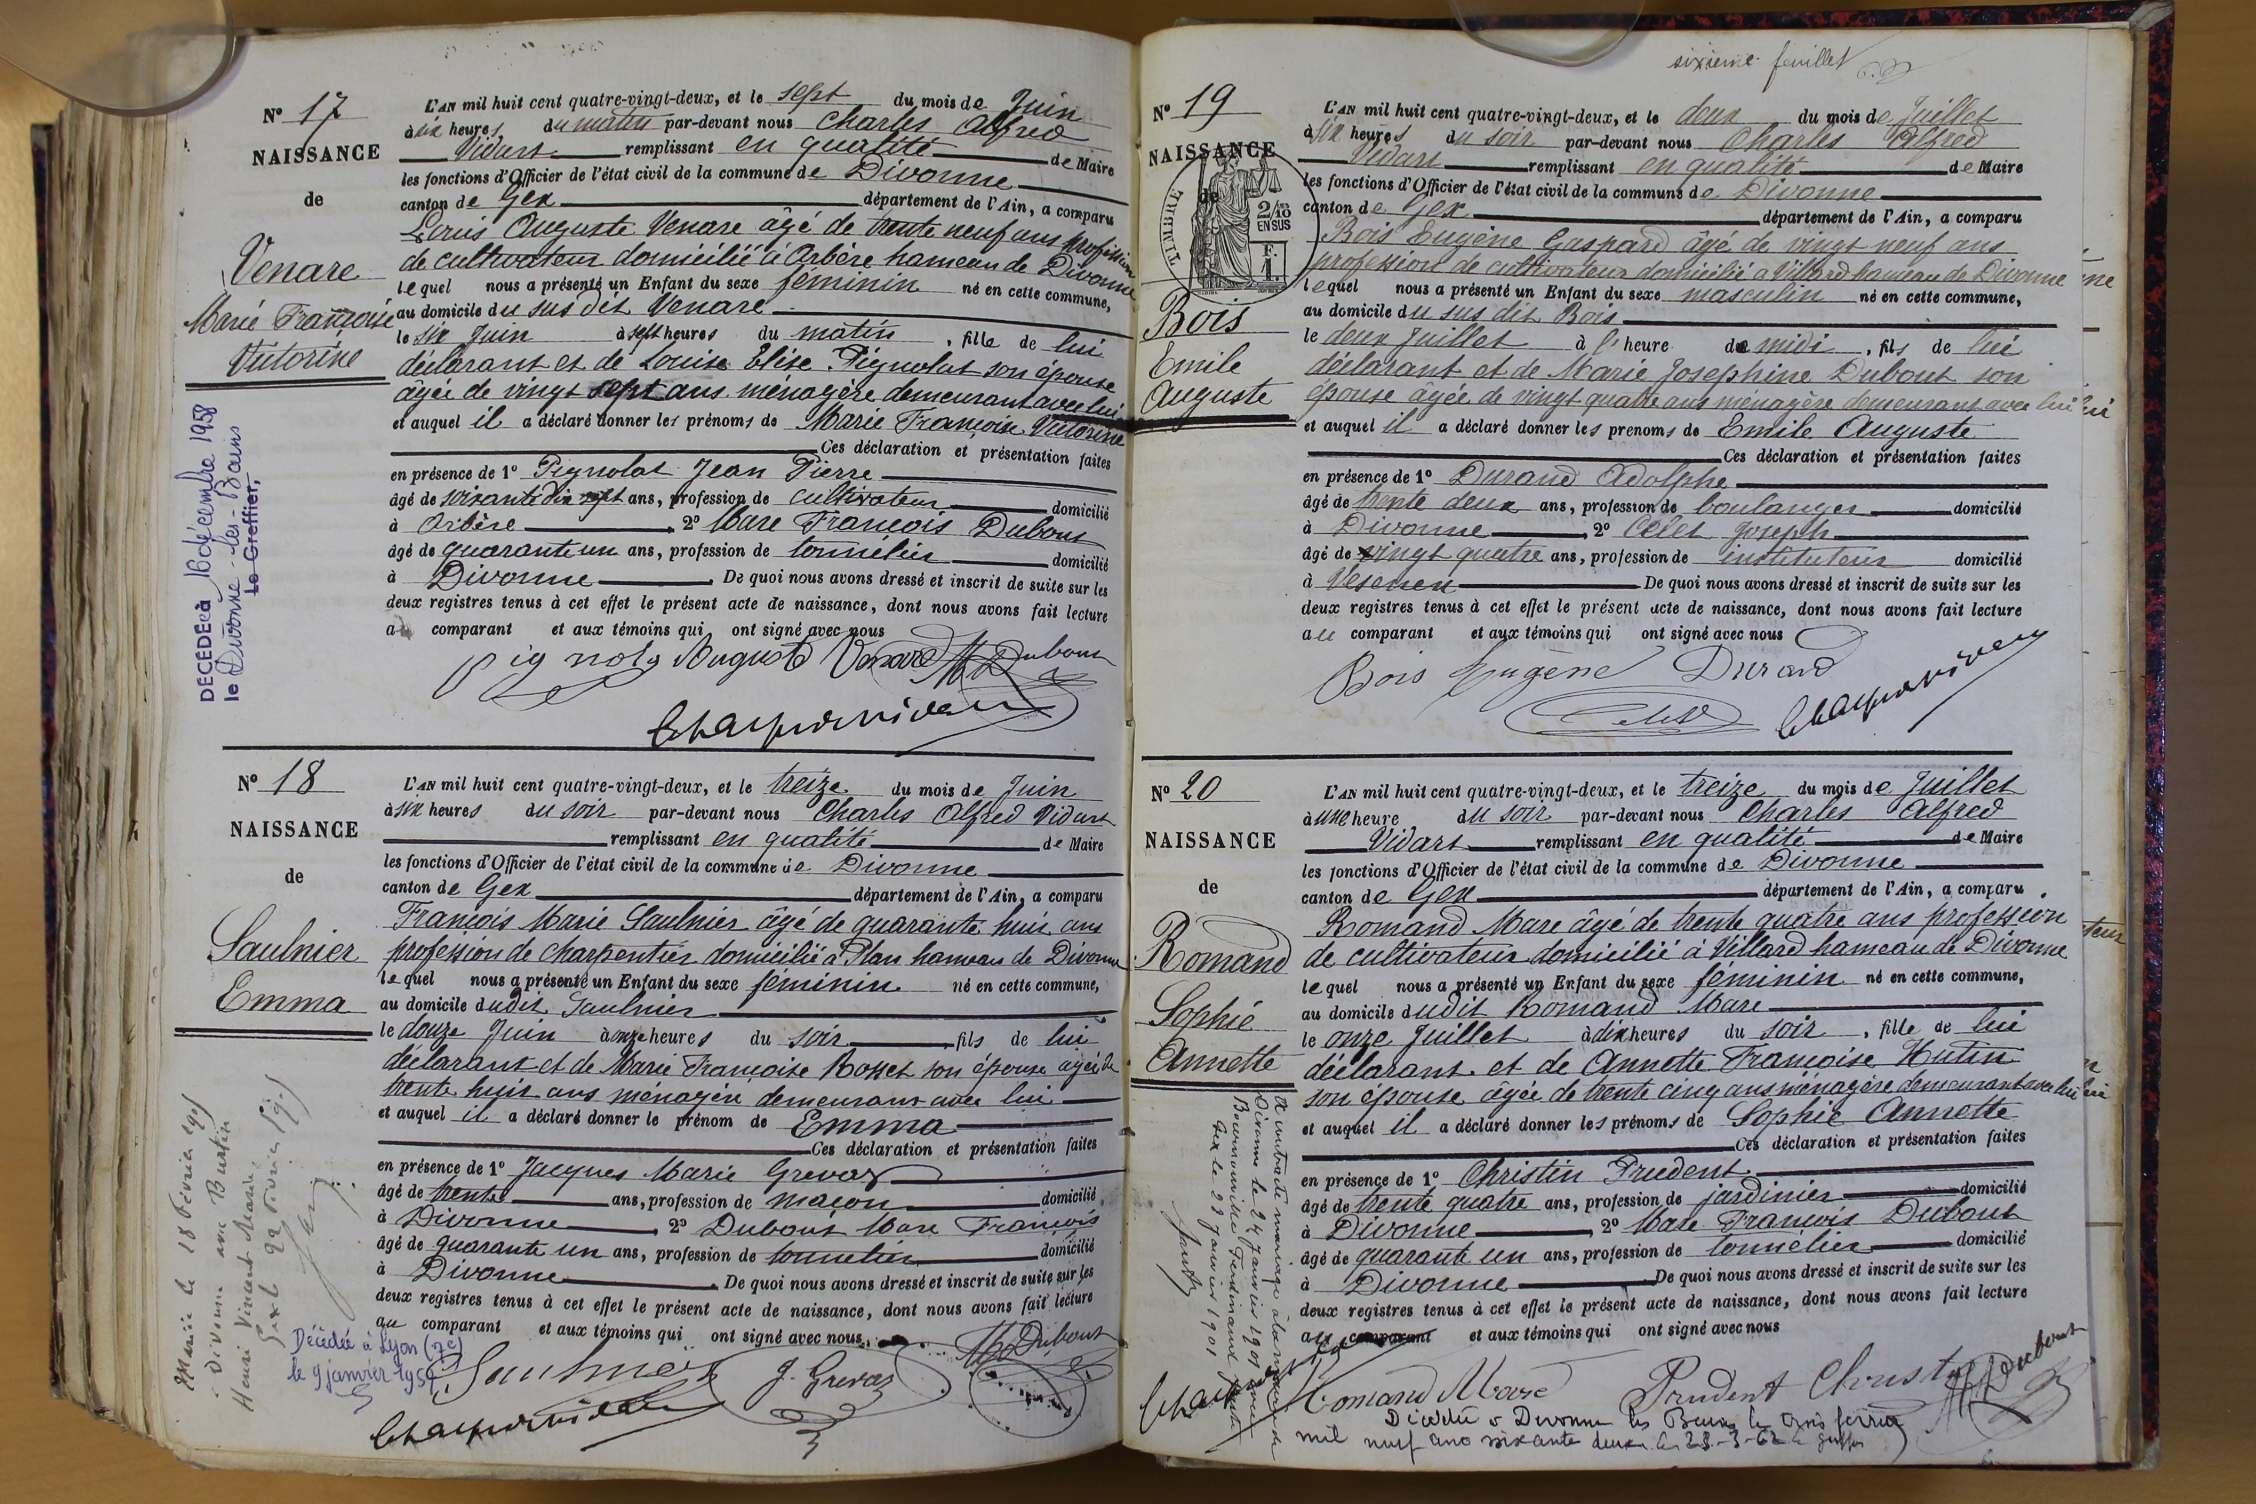 N° 17
NAISSANCE
de
Venare
Marie Françoise
Victorine
DÉCÉDÉE à 16 décembre 1958
le Divonne-les-Bains
Le Greffier,
L'AN mil huit cent quatre-vingt-deux, et le sept du mois de Juin
à six heures du matin par-devant nous Charles Alfred
Vidart remplissant en qualité de Maire
les fonctions d'Officier de l'état civil de la commune de Divonne
canton de Gex département de l'Ain, a comparu
Louis Auguste Venare âgé de trente neuf ans profession
de cultivateur domicilié à Arbère hameau de Divonne
lequel nous a présenté un Enfant du sexe féminin né en cette commune,
au domicile du sus dit Venare
le six Juin à sept heures du matin, fille de lui
déclarant et de Louise Elise Pignolat son épouse
âgée de vingt sept ans ménagère demeurant avec lui
et auquel il a déclaré donner les prénoms de Marie Françoise Victorine
Ces déclaration et présentation faites
en présence de 1° Pignolat Jean Pierre
âgé de soixante dix sept ans, profession de cultivateur domicilié
à Arbère, 2° Marc François Dubout
âgé de quarante un ans, profession de tonnelier domicilié
à Divonne. De quoi nous avons dressé et inscrit de suite sur les
deux registres tenus à cet effet le présent acte de naissance, dont nous avons fait lecture
au comparant et aux témoins qui ont signé avec nous
Auguste Venare M Dubout
N° 18
NAISSANCE
de
Saulnier
Emma
Marié le 18 Février
Divonne avec
Henri Vincent Marie
Décédée à Lyon (7e)
le 9 janvier 1959
L'AN mil huit cent quatre-vingt-deux, et le treize du mois de Juin
à six heures du soir par-devant nous Charles Alfred Vidart
remplissant en qualité de Maire
les fonctions d'Officier de l'état civil de la commune de Divonne
canton de Gex département de l'Ain, a comparu
François Marie Saulnier âgé de quarante huit ans
profession de charpentier domicilié à Plan hameau de Divonne
lequel nous a présenté un Enfant du sexe féminin né en cette commune,
au domicile dudit Saulnier
le douze Juin à onze heures du soir, fils de lui
déclarant et de Marie Françoise Rosset son épouse âgée de
trente huit ans ménagère demeurant avec lui
et auquel il a déclaré donner le prénom de Emma
Ces déclaration et présentation faites
en présence de 1° Jacques Marie Grevaz
âgé de trente ans, profession de maçon domicilié
à Divonne 2° Dubout Marc François
âgé de quarante un ans, profession de tonnelier domicilié
à Divonne. De quoi nous avons dressé et inscrit de suite sur les
deux registres tenus à cet effet le présent acte de naissance, dont nous avons fait lecture
au comparant et aux témoins qui ont signé avec nous
Saulnier J. Grevaz M Dubout
sixième feuillet
N° 19
NAISSANCE
de
TIMBRE
2/10
EN SUS
F.
1.
Bois
Emile
Auguste
L'AN mil huit cent quatre-vingt-deux, et le deux du mois de Juillet
à six heures du soir par-devant nous Charles Alfred
Vidart remplissant en qualité de Maire
les fonctions d'Officier de l'état civil de la commune de Divonne
canton de Gex département de l'Ain, a comparu
Bois Eugène Gaspard âgé de vingt neuf ans
profession de cultivateur domicilié à Villard hameau de Divonne
lequel nous a présenté un Enfant du sexe masculin né en cette commune,
au domicile du sus dit Bois
le deux Juillet à 1 heure de midi, fils de lui
déclarant et de Marie Josephine Dubout son
épouse âgée de vingt quatre ans ménagère demeurant avec lui
et auquel il a déclaré donner les prenoms de Emile Auguste
Ces déclaration et présentation faites
en présence de 1° Durand Adolphe
âgé de trente deux ans, profession de boulanger domicilié
à Divonne, 2° Joseph
âgé de vingt quatre ans, profession de instituteur domicilié
à Vesenex De quoi nous avons dressé et inscrit de suite sur les
deux registres tenus à cet effet le présent acte de naissance, dont nous avons fait lecture
au comparant et aux témoins qui ont signé avec nous
Bois Eugène Durand
N° 20
NAISSANCE
de
Romand
Sophie
Annette
A contracté mariage à la mairie de
Divonne le 24 Janvier 1901 avec
Ferdinand
Gex le 28 Janvier 1901
L'AN mil huit cent quatre-vingt-deux, et le treize du mois de Juillet
à une heure du soir par-devant nous Charles Alfred
Vidart remplissant en qualité de Maire
les fonctions d'Officier de l'état civil de la commune de Divonne
canton de Gex département de l'Ain, a comparu
Romand Marc âgé de trente quatre ans profession
de cultivateur domicilié à Villard hameau de Divonne
lequel nous a présenté un Enfant du sexe féminin né en cette commune,
au domicile dudit Romand Marc
le onze Juillet à dix heures du soir, fille de lui
déclarant et de Annette Françoise Hutin
son épouse âgée de trente cinq ans ménagère demeurant avec lui
et auquel il a déclaré donner les prénoms de Sophie Annette
Ces déclaration et présentation faites
en présence de 1° Christin Prudent
âgé de trente quatre ans, profession de jardinier domicilié
à Divonne, 2° Marc François Dubout
âgé de quarante un ans, profession de tonnelier domicilié
à Divonne De quoi nous avons dressé et inscrit de suite sur les
deux registres tenus à cet effet le présent acte de naissance, dont nous avons fait lecture
au comparant et aux témoins qui ont signé avec nous
Romand Marc Prudent Christin M Dubout
Décédée à Divonne les Bains le trois février
mil neuf cent soixante deux. le 28-3-62 le greffier